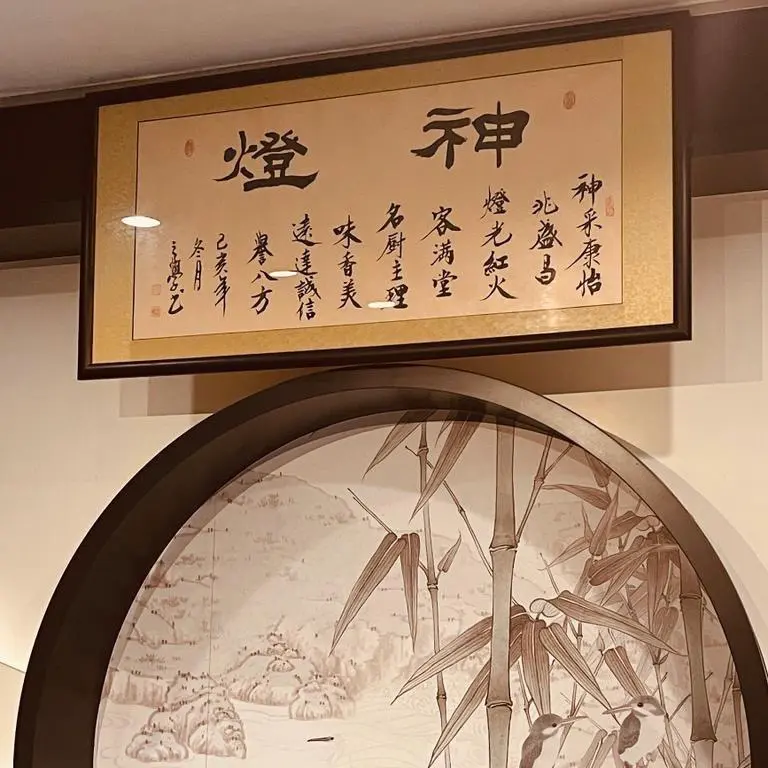 神燈
神采康怡
兆盛昌
燈光紅火
客滿堂
名厨主理
味香美
遠達誠信
譽八方
己亥年
冬月